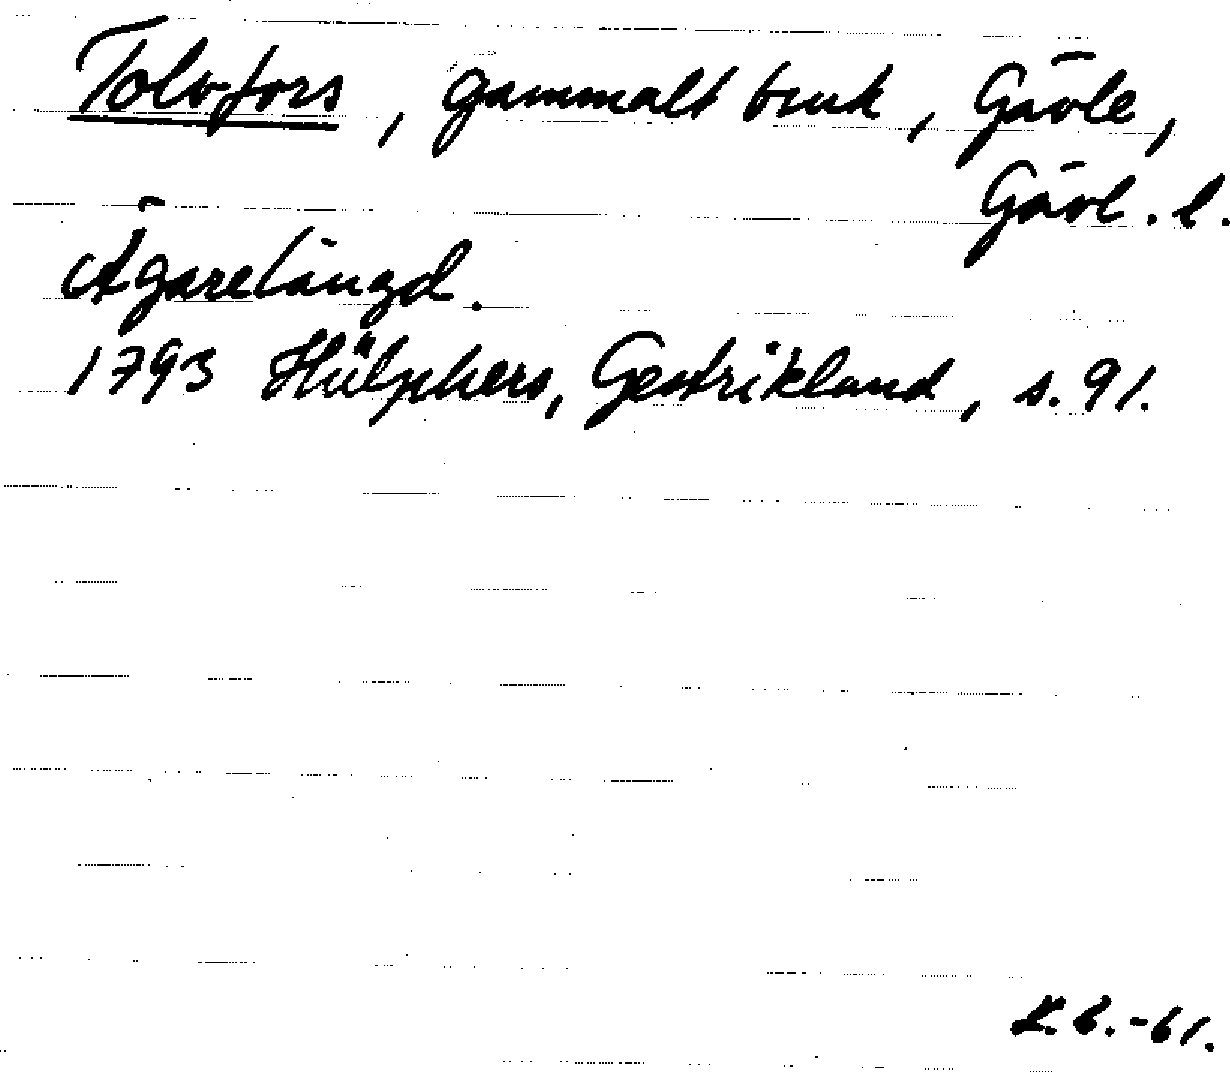 Tolvfors, gammalt bruk, Gävle,
Gävl. l.
Ägarelängd.
1793 Hülphers, Gestrikland, s. 91.
K.B.-61.